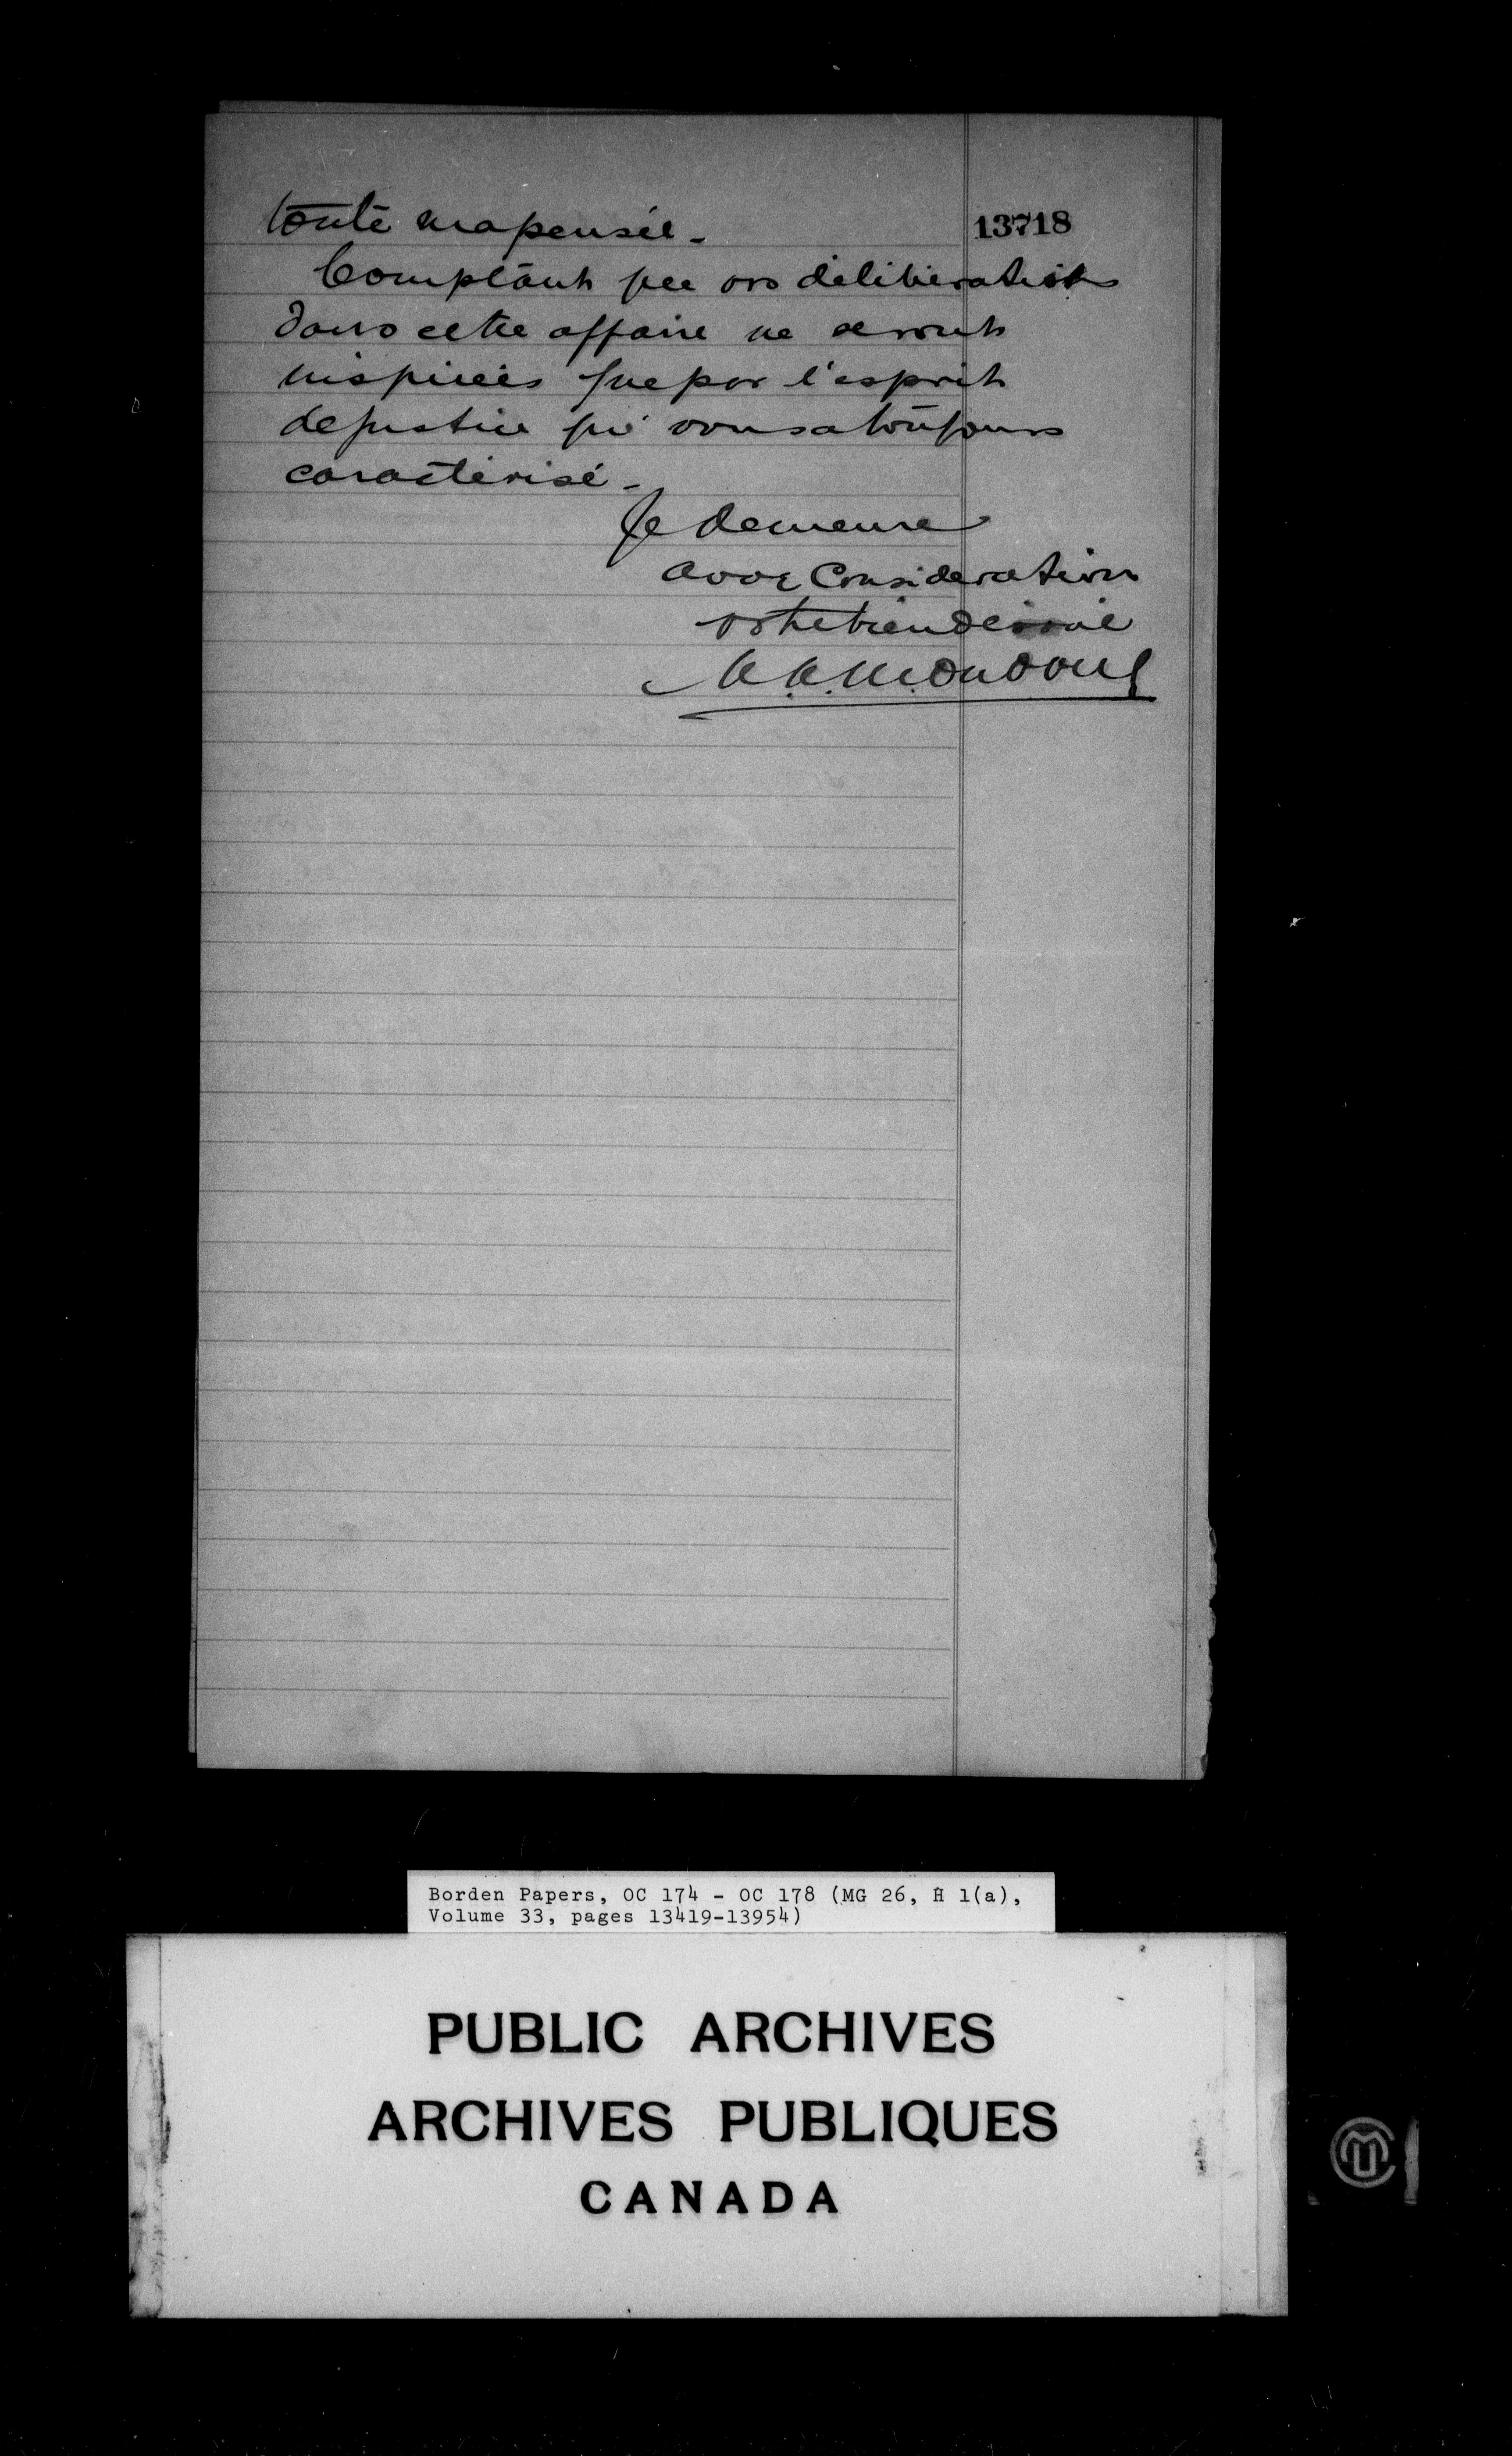 toute ma pensée -
13718
Comptant que vos délibérations
dans cette affaire ne seront
inspirées que par l'esprit
de justice qui vous a toujours
caractérisé -
Je demeure
avec Consideration
votre bien dévoué
A. A. Mondou
Borden Papers, OC 174 - OC 178 (MG 26, H 1(a),
Volume 33, pages 13419-13954)
PUBLIC ARCHIVES
ARCHIVES PUBLIQUES
CANADA